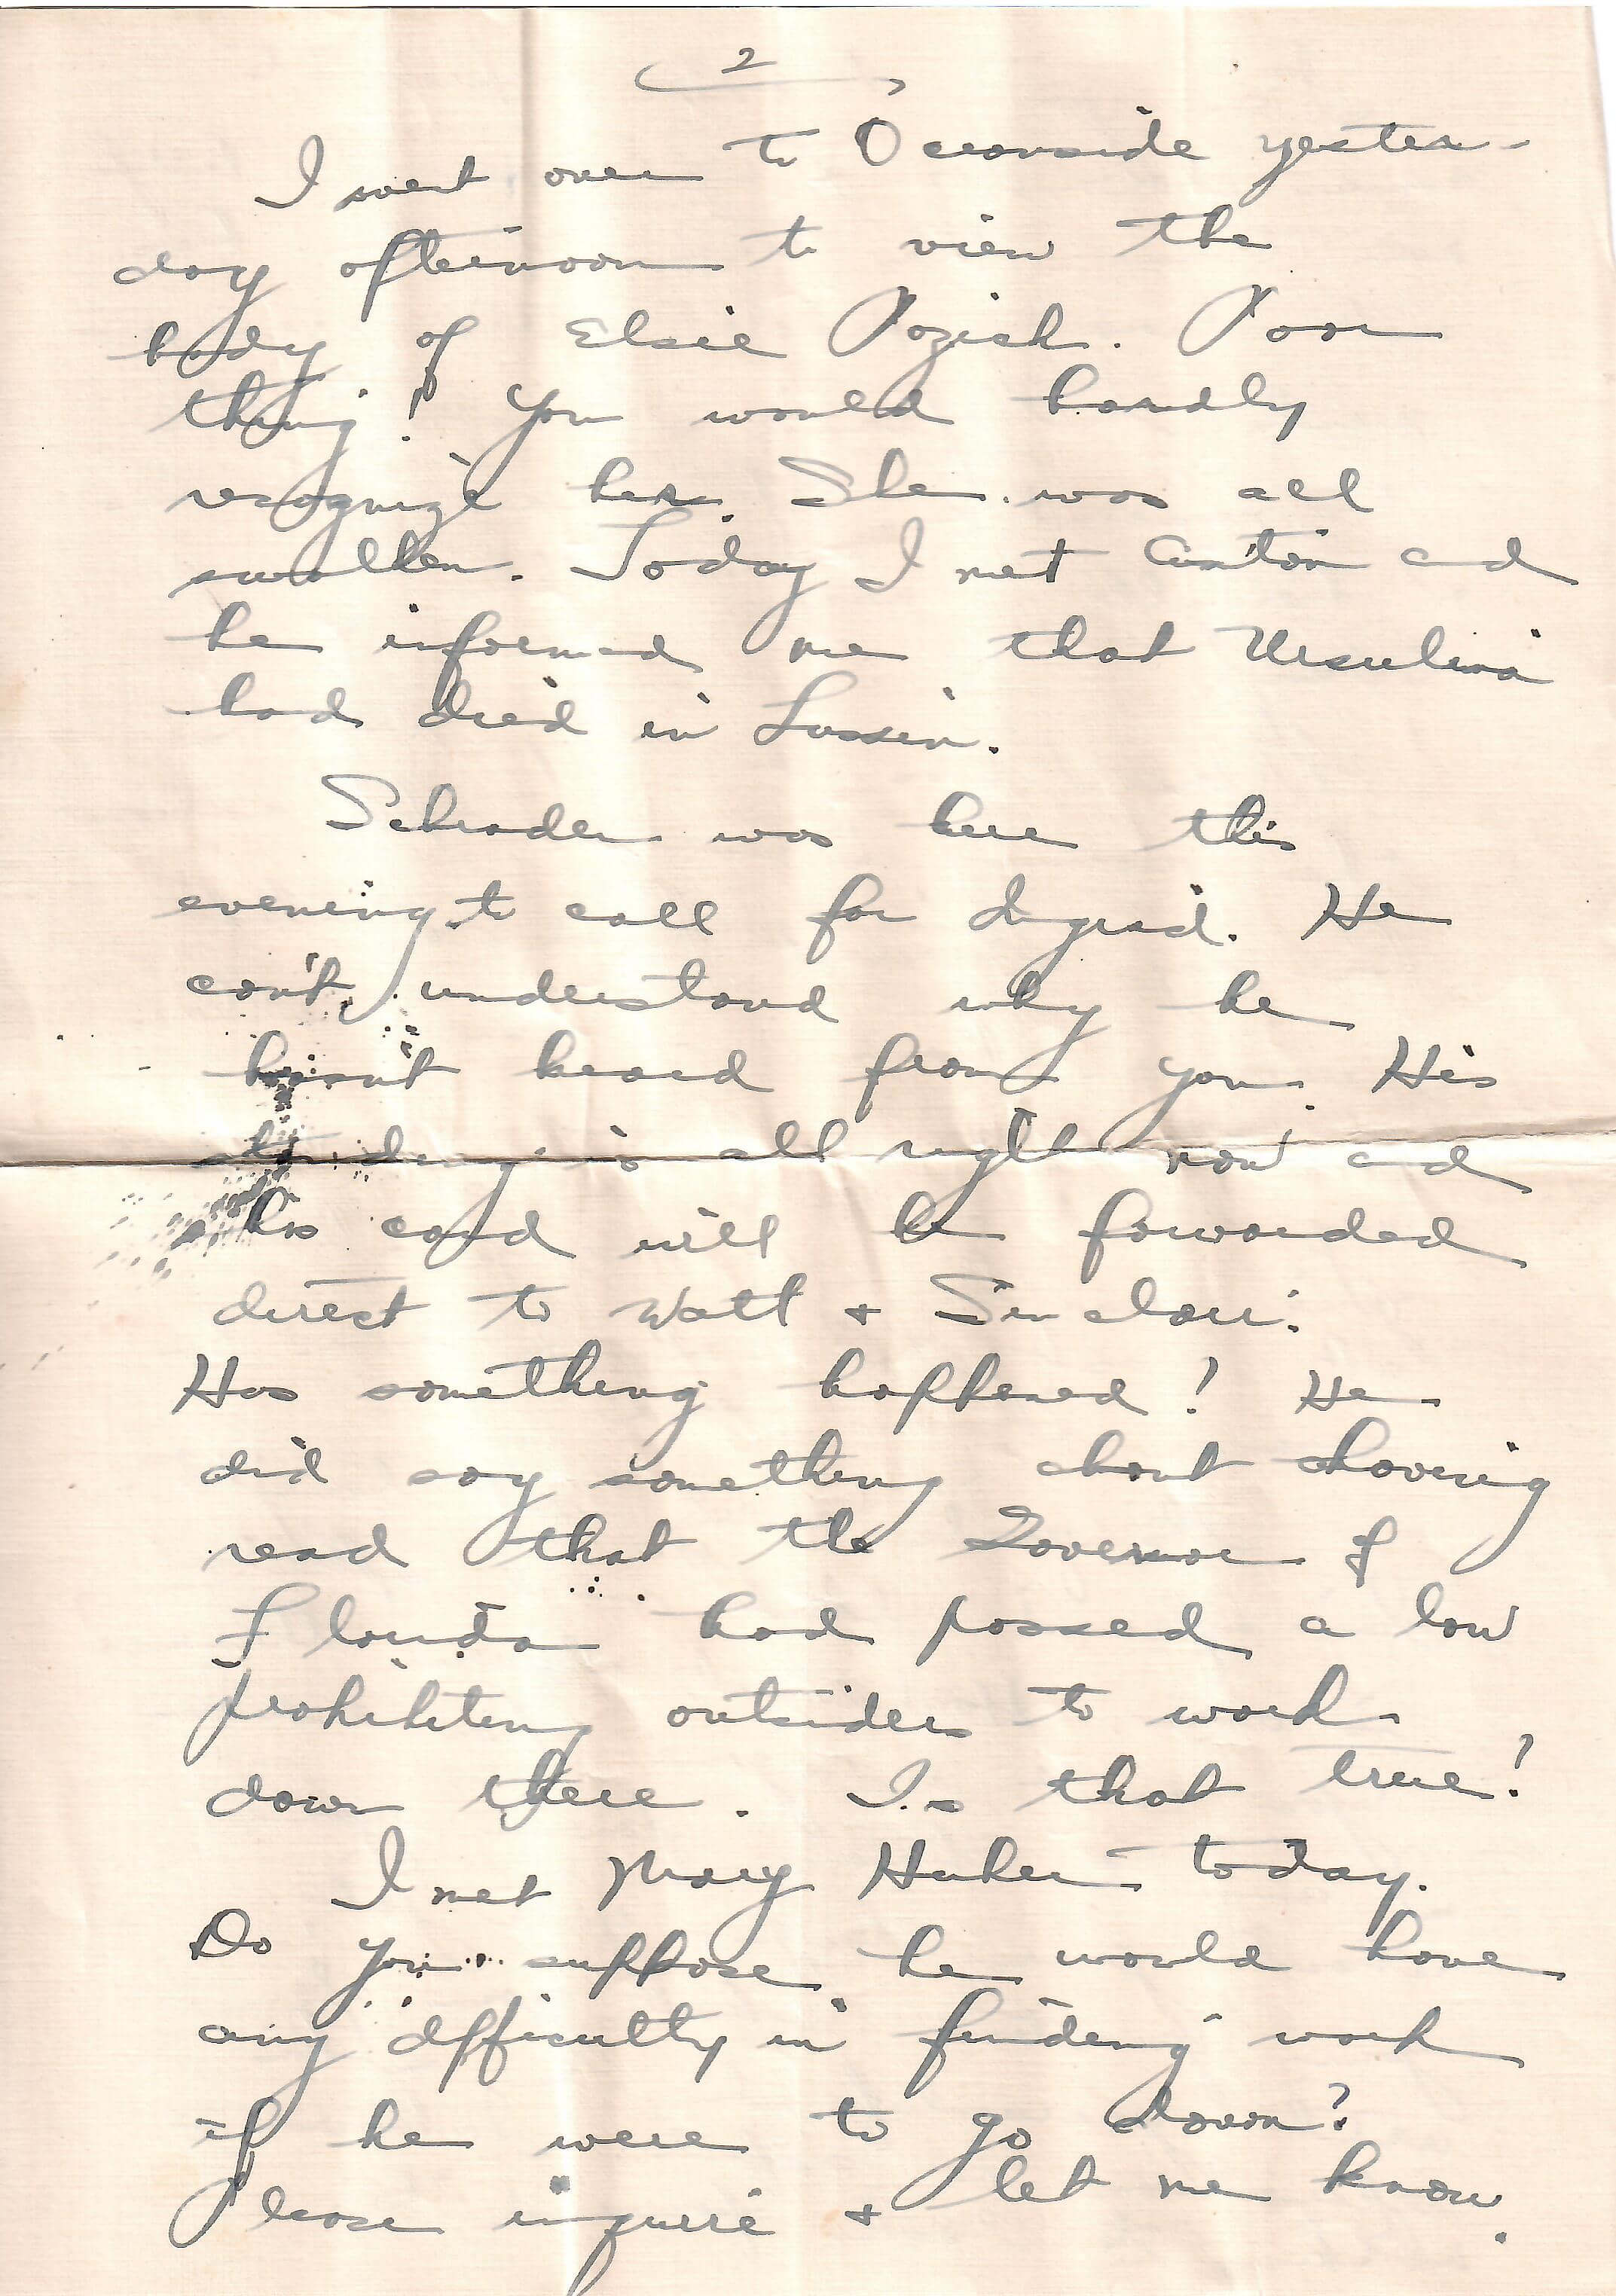 2
I went over to Oceanside yester-
day afternoon to view the
body of Elsie Pozich. Poor
thing! You would hardly
recognize her. She was all
swollen. Today I met Anton and
he informed me that Ursulina
had died in Lussin.
Schrader was here this
evening to call for Ingrid. He
can't understand why he
hasn't heard from you. His
standing is all right now and
his card will be forwarded
direct to Watt & Sinclair.
Has something happened? He
did say something about having
read that the Governor of
Florida had passed a law
prohibiting outsiders to work
down there. Is that true?
I met Mary Huber today.
Do you suppose he would have
any difficulty in finding work
if he were to go down?
Please inquire & let me know.